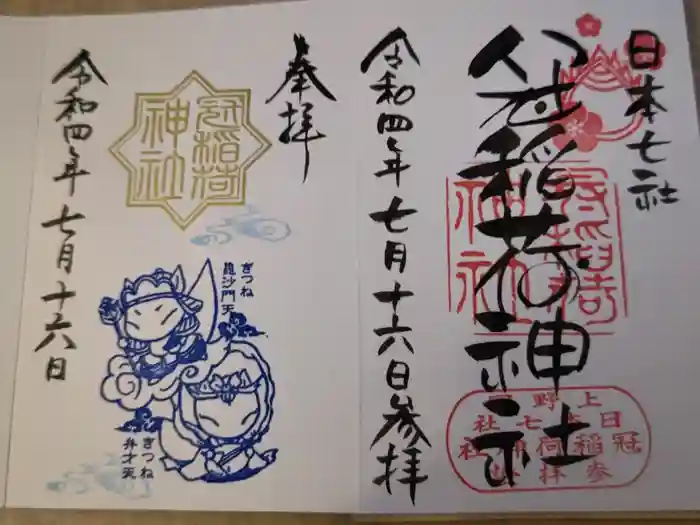 日本七社
冠稲荷神社
冠稲荷
神社
上野國
日本七社
冠稲荷神社
参拝
令和四年七月十六日参拝
奉拝
冠稲荷
神社
きつね
毘沙門天
きつね
弁才天
令和四年七月十六日